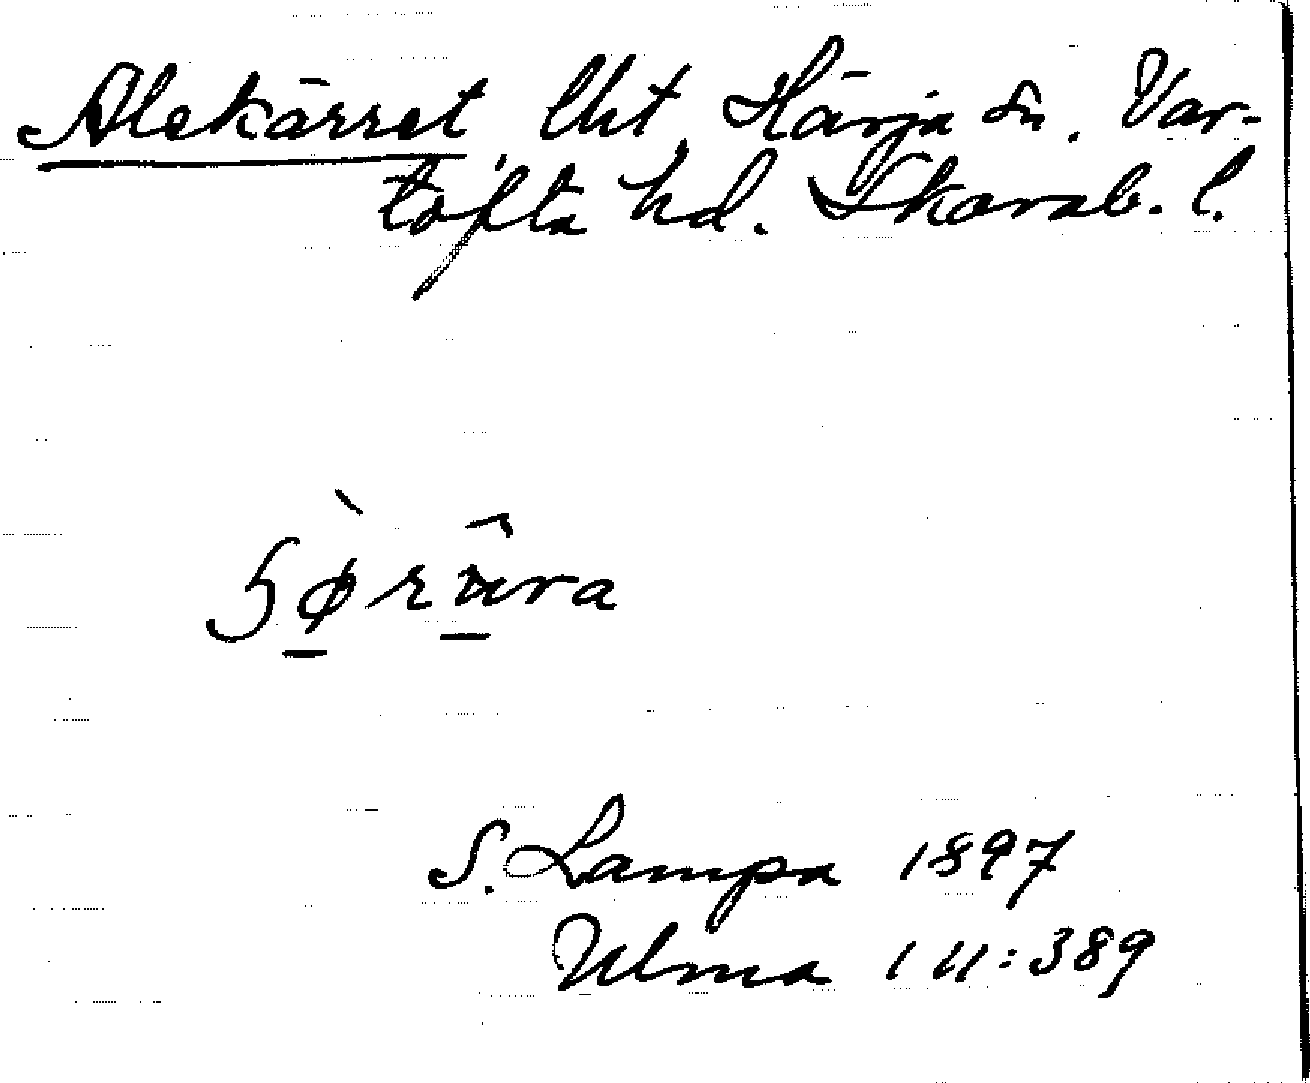 Alekärret, lht, Härja sn. Var-
tofta hd. Skarab. l.
S. Lampa 1897
Ulma 111:389